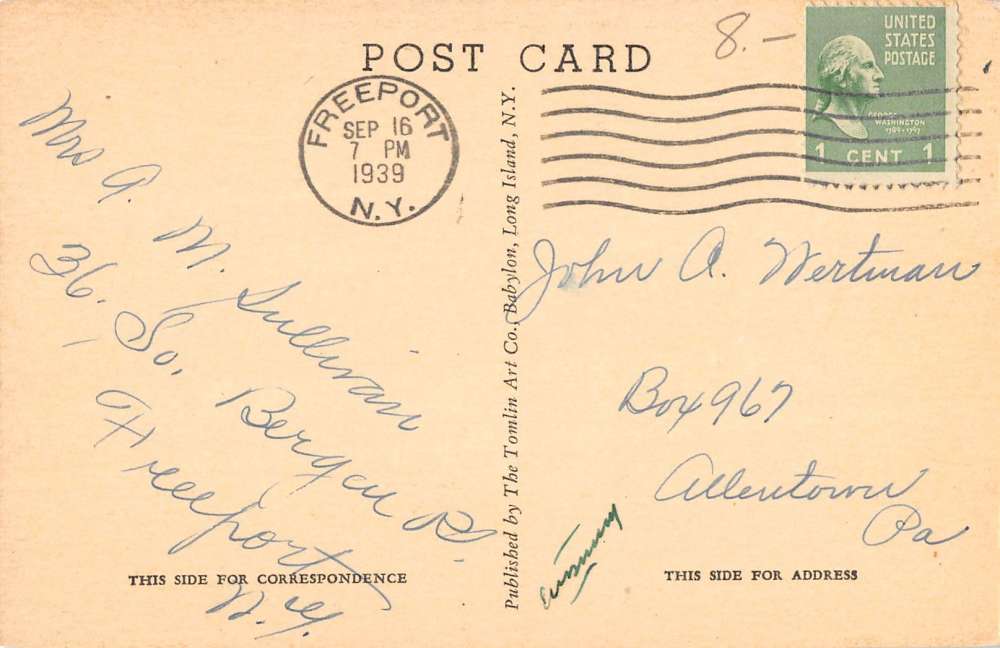 8.-
UNITED
STATES
POSTAGE
GEORGE
WASHINGTON
1789-1797
1 CENT 1
POST CARD
FREEPORT
SEP 16
7 PM
1939
N.Y.
Mrs A. M. Sullivan
36. So. Bergen Pl.
Freeport
N.Y.
Published by The Tomlin Art Co., Babylon, Long Island, N.Y.
John A. Wertman
Box 967
Allentown
Pa
THIS SIDE FOR CORRESPONDENCE
THIS SIDE FOR ADDRESS